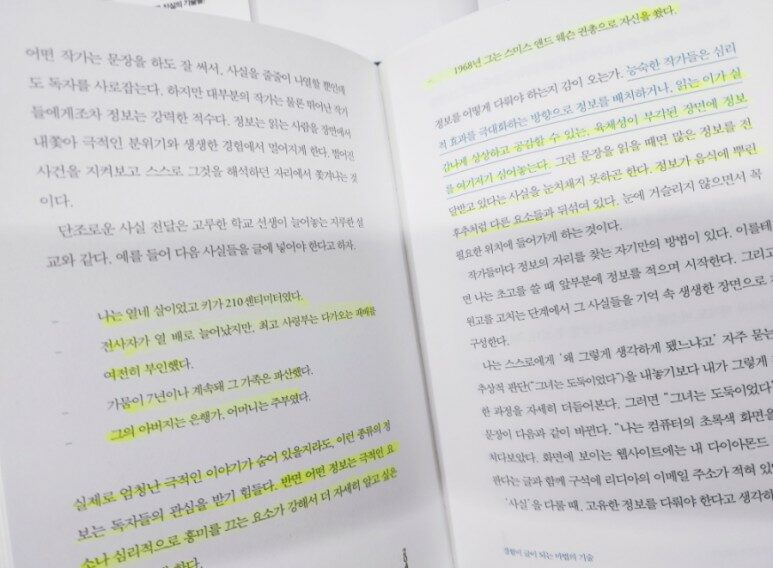 사실의 기술들
어떤 작가는 문장을 하도 잘 써서, 사실을 줄줄이 나열할 뿐인데
도 독자를 사로잡는다. 하지만 대부분의 작가는 물론 뛰어난 작가
들에게조차 정보는 강력한 적수다. 정보는 읽는 사람을 장면에서
내쫓아 극적인 분위기와 생생한 경험에서 멀어지게 한다. 벌어진
사건을 지켜보고 스스로 그것을 해석하던 자리에서 쫓겨나는 것
이다.
단조로운 사실 전달은 고루한 학교 선생이 늘어놓는 지루한 설
교와 같다. 예를 들어 다음 사실들을 글에 넣어야 한다고 하자.
– 나는 열네 살이었고 키가 210센티미터였다.
– 전사자가 열 배로 늘어났지만, 최고 사령부는 다가오는 패배를
여전히 부인했다.
– 가뭄이 7년이나 계속돼 그 가족은 파산했다.
– 그의 아버지는 은행가, 어머니는 주부였다.
실제로 엄청난 극적인 이야기가 숨어 있을지라도, 이런 종류의 정
보는 독자들의 관심을 받기 힘들다. 반면 어떤 정보는 극적인 요
소나 심리적으로 흥미를 끄는 요소가 강해서 더 자세히 알고 싶은
한다.
1968년 그는 스미스 앤드 웨슨 권총으로 자신을 쐈다.
정보를 어떻게 다뤄야 하는지 감이 오는가. 능숙한 작가들은 심리
적 효과를 극대화하는 방향으로 정보를 배치하거나, 읽는 이가 실
감나게 상상하고 공감할 수 있는, 육체성이 부각된 장면에 정보
를 여기저기 심어놓는다. 그런 문장을 읽을 때면 많은 정보를 전
달받고 있다는 사실을 눈치채지 못하곤 한다. 정보가 음식에 뿌린
후추처럼 다른 요소들과 뒤섞여 있다. 눈에 거슬리지 않으면서 꼭
필요한 위치에 들어가게 하는 것이다.
작가들마다 정보의 자리를 찾는 자기만의 방법이 있다. 이를테
면 나는 초고를 쓸 때 앞부분에 정보를 적으며 시작한다. 그리고
원고를 고치는 단계에서 그 사실들을 기억 속 생생한 장면으로
구성한다.
나는 스스로에게 '왜 그렇게 생각하게 됐느냐고' 자주 묻는
추상적 판단("그녀는 도둑이었다")을 내놓기보다 내가 그렇게
한 과정을 자세히 더듬어본다. 그러면 "그녀는 도둑이었다"
문장이 다음과 같이 바뀐다. "나는 컴퓨터의 초록색 화면을
쳐다보았다. 화면에 보이는 웹사이트에는 내 다이아몬드
판다는 글과 함께 구석에 리디아의 이메일 주소가 적혀 있
'사실'을 다룰 때, 고유한 정보를 다뤄야 한다고 생각하
경험이 글이 되는 마법의 기술